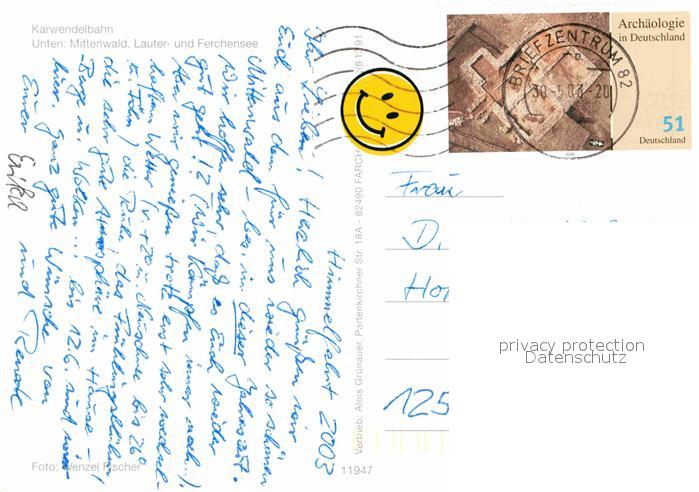 Karwendelbahn
Unten: Mittenwald, Lauter- und Ferchensee
Himmelfahrt 2003
Ihr Lieben! Herzlich grüßen wir
Euch aus dem für uns wieder so schönen
Mittenwald – bes. in dieser Jahreszeit.
Wir hoffen sehr, daß es Euch wieder
gut geht!? (Wir kämpfen immer noch...)
Aber wir genießen trotz erst sehr wechsel-
haftem Wetter (v. +2° m. Neuschnee bis 26°
die sehr gute Atmosphäre im Hause –!
Berge in Wolken...! bis 12.6. sind wir
hier. Ganz gute Wünsche von
Euren
und Renate
Foto: Wenzel Fischer
Vertrieb: Alois Grünauer, Partenkirchner Str. 18A - 82490 FARCH
11947
Archäologie
in Deutschland
51
Deutschland
BRIEFZENTRUM 82
30.-5.03-20
Frau
D.
Hor
125
privacy protection
Datenschutz